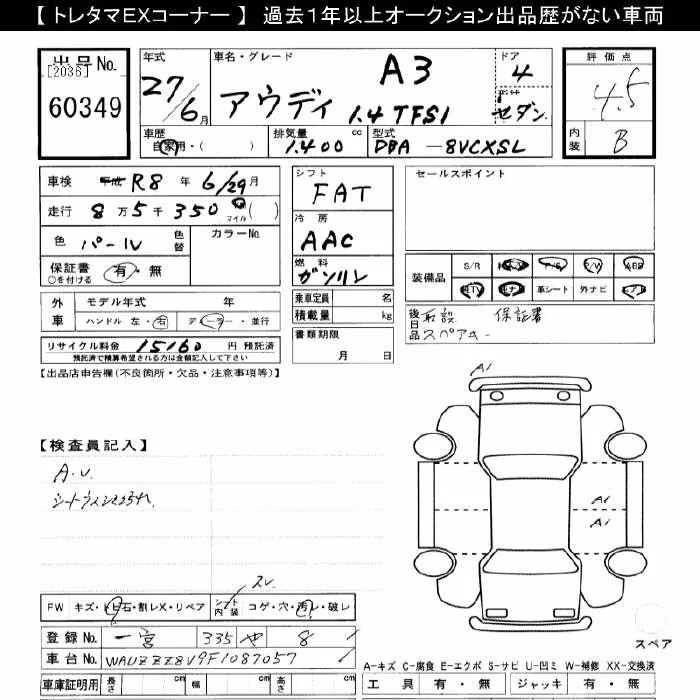 【 トレタマEXコーナー 】 過去1年以上オークション出品歴がない車両
出品No.
[2036]
60349
年式
27/6月
車名・グレード
A3
アウディ 1.4TFSI
ドア
4
セダン
評価点
4.5
内装
B
車歴
自家用・( )
排気量
cc
1.400
型式
DBA - 8VCXSL
車検 平成 R8 年 6/29月
走行 8万5千350 マイル ( )
色 パール 色替
カラーNo.
保証書 有・無
○を付ける
シフト
FAT
冷房
AAC
燃料
ガソリン
乗車定員 名
積載量 kg
書類期限
月 日
セールスポイント
装備品
S/R P/S P/W ABS
革シート 外ナビ
後日品
取説 保証書
スペアキー
外車
モデル年式 年
ハンドル 左・右 ディーラー・並行
リサイクル料金 15160 円 預託済
預託済で精算希望される方は金額記入して下さい
【出品店申告欄(不良箇所・欠品・注意事項等)】
A1
【検査員記入】
A.U
A1
A1
スレ
FW キズ・トビ石・割レX・リペア
シート内装 コゲ・穴・汚レ・破レ
登録No. 一宮 335 や 8
車台No. WAUZZZ8V9F1087057
車庫証明用 長さ cm 幅 cm 高さ cm
スペア
A-キズ C-腐食 E-エクボ S-サビ U-凹ミ W-補修 XX-交換済
工具 有・無 ジャッキ 有・無